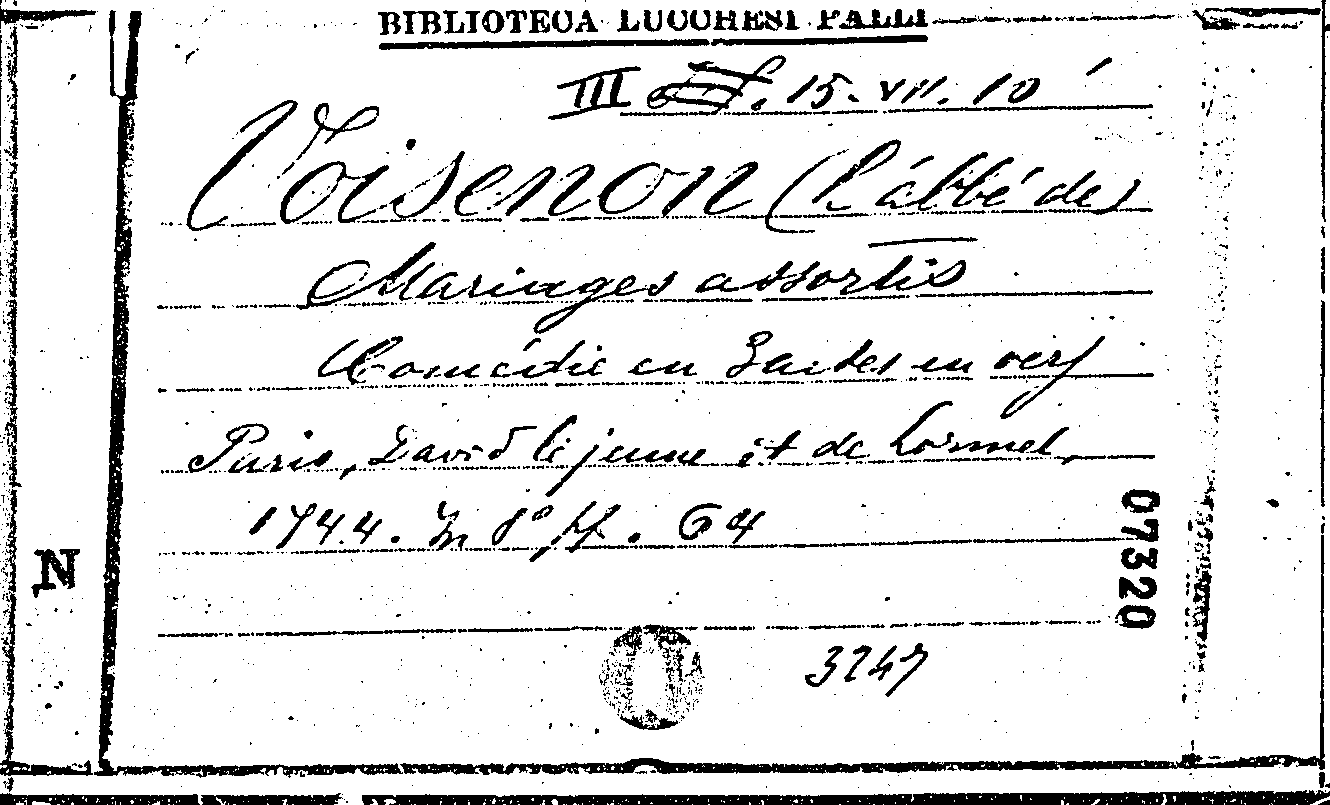 BIBLIOTECA LUCCHESI PALLI
III 15. VII. 10
Voisenon (L'abbé de)
Mariages assortis
Comédie en 3 actes en vers
Paris, David le jeune et de Lormel,
1744. In 8° pp. 64
07320
N
3247